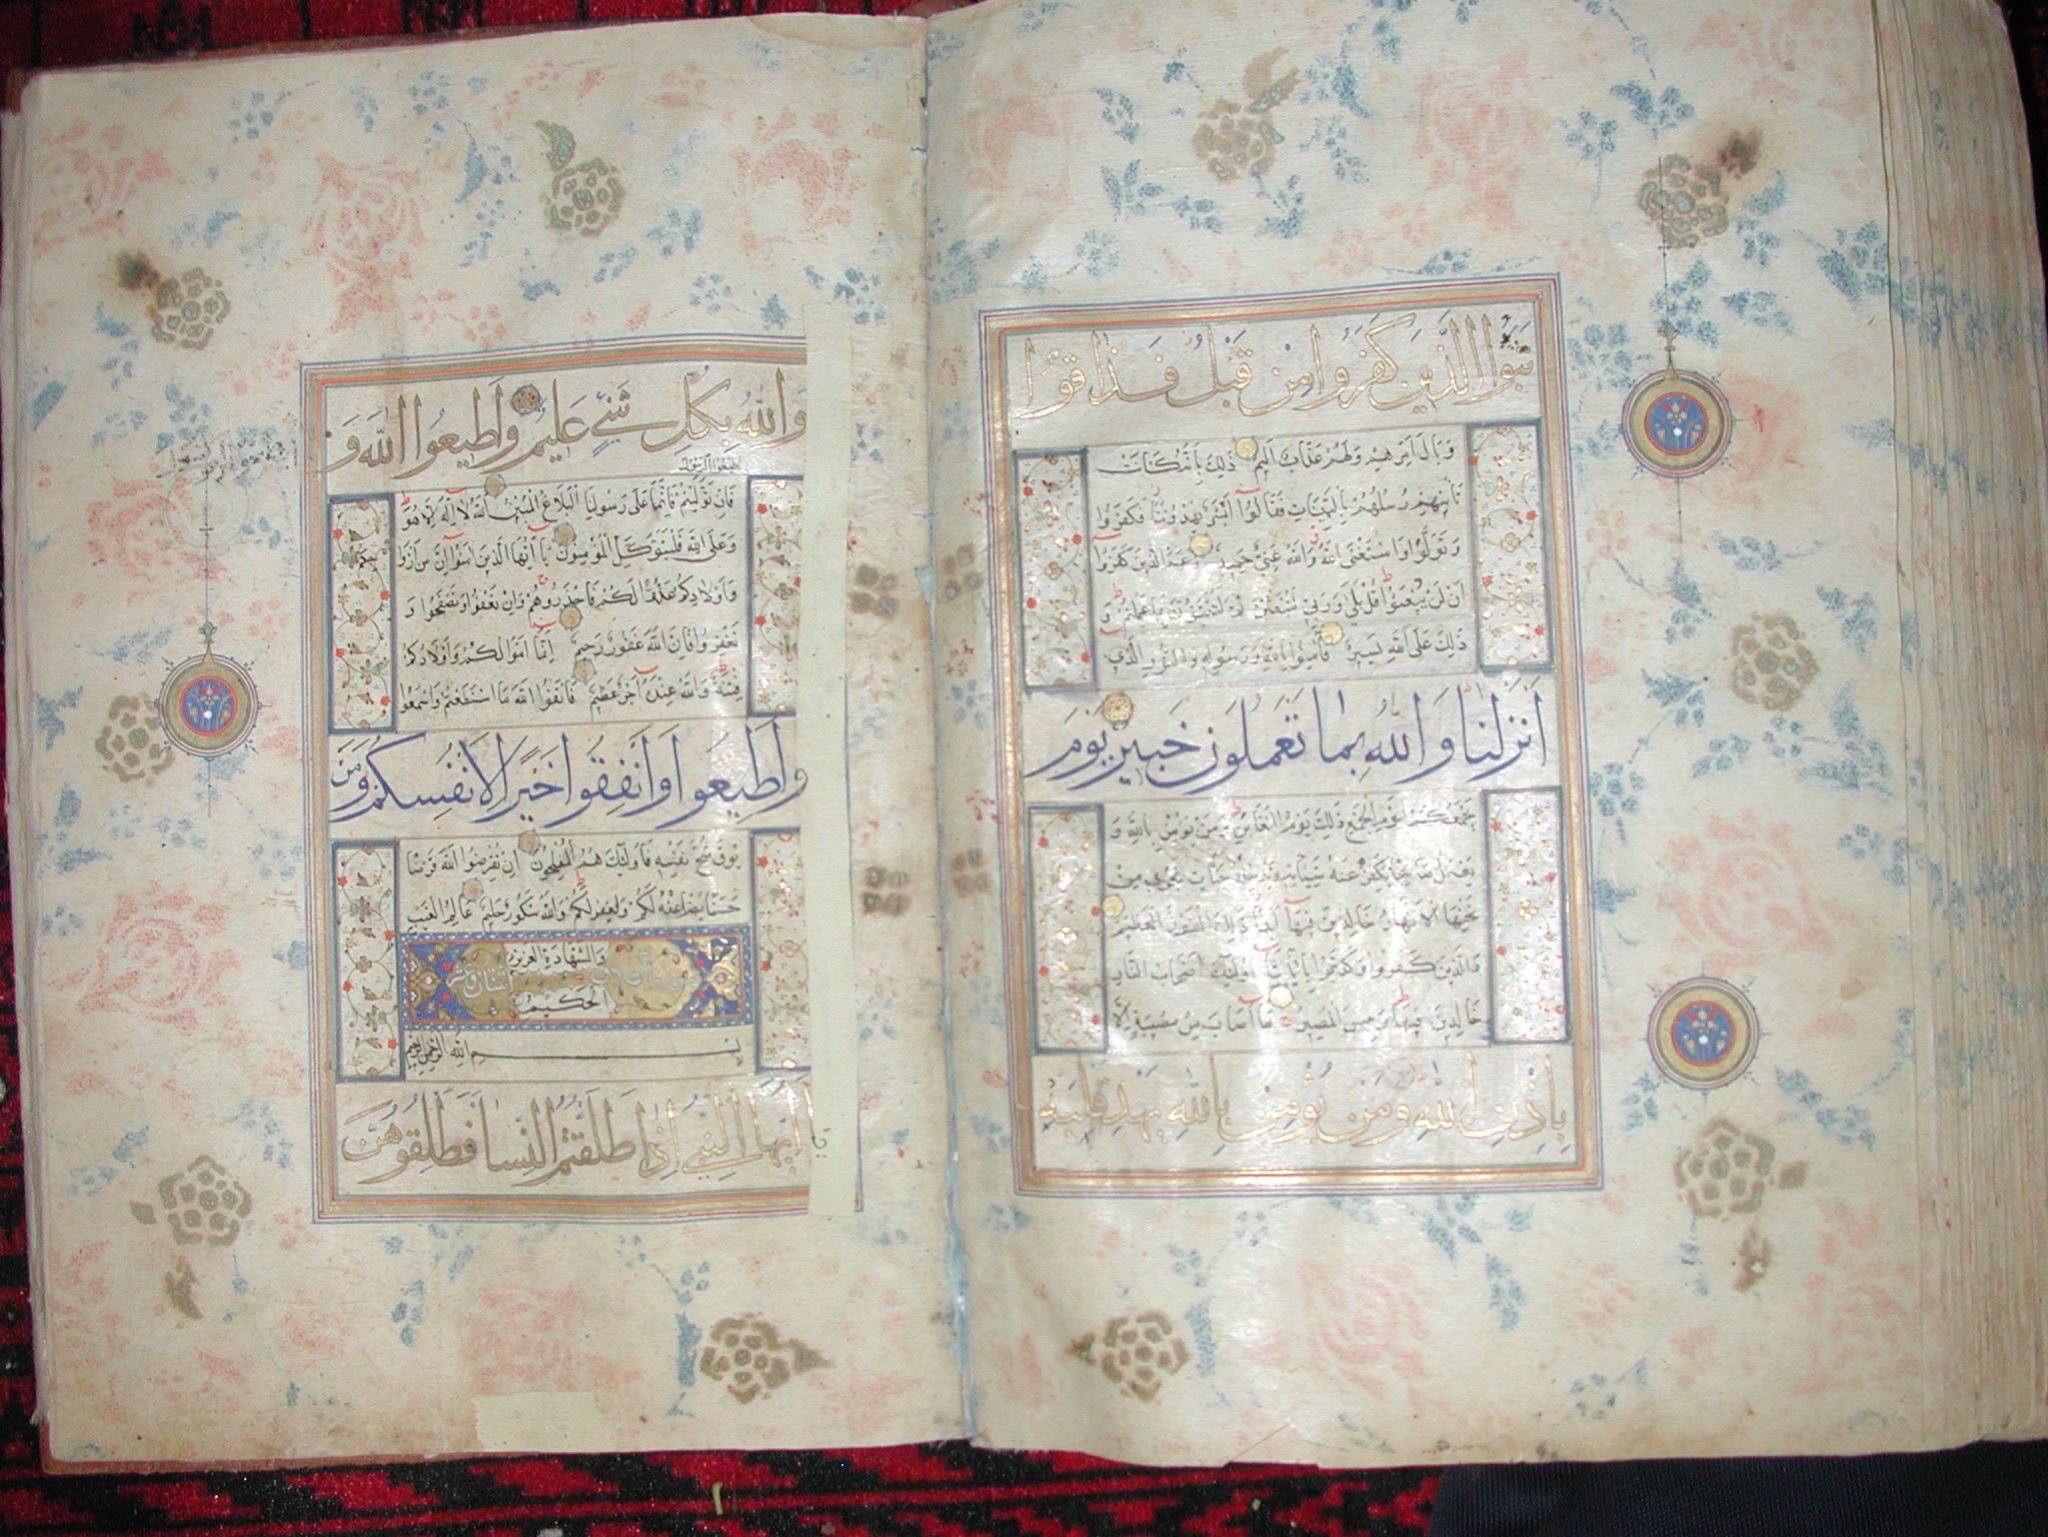 نبؤا الذين كفروا من قبل فذاقوا
وبال امرهم ولهم عذاب اليم ذلك بانه كانت
تأتيهم رسلهم بالبينات فقالوا ابشر يهدوننا فكفروا
وتولوا واستغنى الله والله غني حميد زعم الذين كفروا
ان لن يبعثوا قل بلى وربي لتبعثن ثم لتنبؤن بما عملتم و
ذلك على الله يسير فآمنوا بالله ورسوله والنور الذي
انزلنا والله بما تعملون خبير يوم
يجمعكم ليوم الجمع ذلك يوم التغابن ومن يؤمن بالله و
يعمل صالحا يكفر عنه سيئاته ويدخله جنات تجري من
تحتها الانهار خالدين فيها ابدا ذلك الفوز العظيم
والذين كفروا وكذبوا بآياتنا اولئك اصحاب النار
خالدين فيها وبئس المصير ما اصاب من مصيبة الا
باذن الله ومن يؤمن بالله يهد قلبه
والله بكل شيء عليم واطيعوا الله و
اطيعوا الرسول
فان توليتم فانما على رسولنا البلاغ المبين الله لا اله الا هو
وعلى الله فليتوكل المؤمنون يا ايها الذين امنوا ان من ازوا
جكم
واولادكم عدوا لكم فاحذروهم وان تعفوا وتصفحوا و
تغفروا فان الله غفور رحيم انما اموالكم واولادكم
فتنة والله عنده اجر عظيم فاتقوا الله ما استطعتم واسمعوا
واطيعوا وانفقوا خيرا لانفسكم ومن
يوق شح نفسه فاولئك هم المفلحون ان تقرضوا الله قرضا
حسنا يضاعفه لكم ويغفر لكم والله شكور حليم عالم الغيب
والشهادة العزيز
الحكيم
بسم الله الرحمن الرحيم
يا ايها النبي اذا طلقتم النسا فطلقوهن